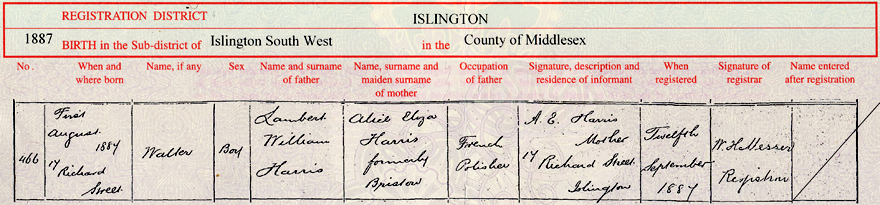 REGISTRATION DISTRICT ISLINGTON
1887 BIRTH in the Sub-district of Islington South West in the County of Middlesex
No. When and where born Name, if any Sex Name and surname of father Name, surname and maiden surname of mother Occupation of father Signature, description and residence of informant When registered Signature of registrar Name entered after registration
466
First
August
1887
17
Richard
Street
Walter
Boy
Lambert
William
Harris
Alice Eliza
Harris
formerly
Bristow
French
Polisher
A. E. Harris
Mother
17
Richard Street
Islington
Twelfth
September
1887
W. H. Messer
Registrar